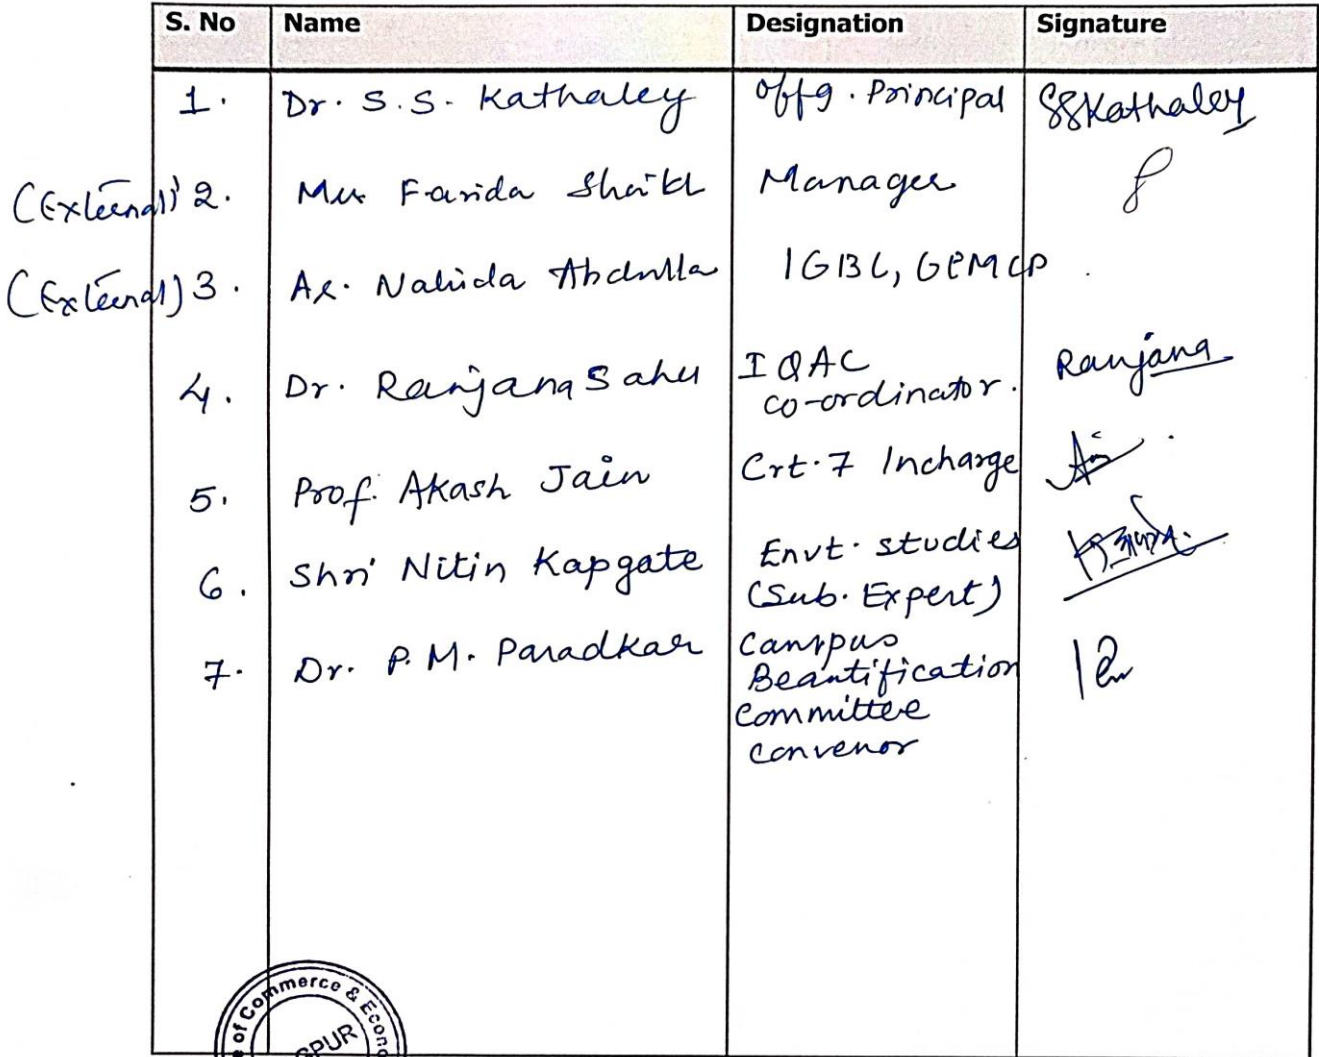 S. No Name Designation Signature
1. Dr. S.S. Kathaley Offg. Principal SSKathaley
(External) 2. Farida Shaikh Manager
(External) 3. Ar. Nahida Abdulla IGBC, GEM CP.
4. Dr. Ranjana Sahu IQAC Ranjana
co-ordinator.
5. Prof. Akash Jain Crt. 7 Incharge
6. Shri Nitin Kapgate Envt. studies
(Sub. Expert)
7. Dr. P.M. Paradkar Campus
Beautification
Committee
convenor
e of Commerce & Econo
SPUR